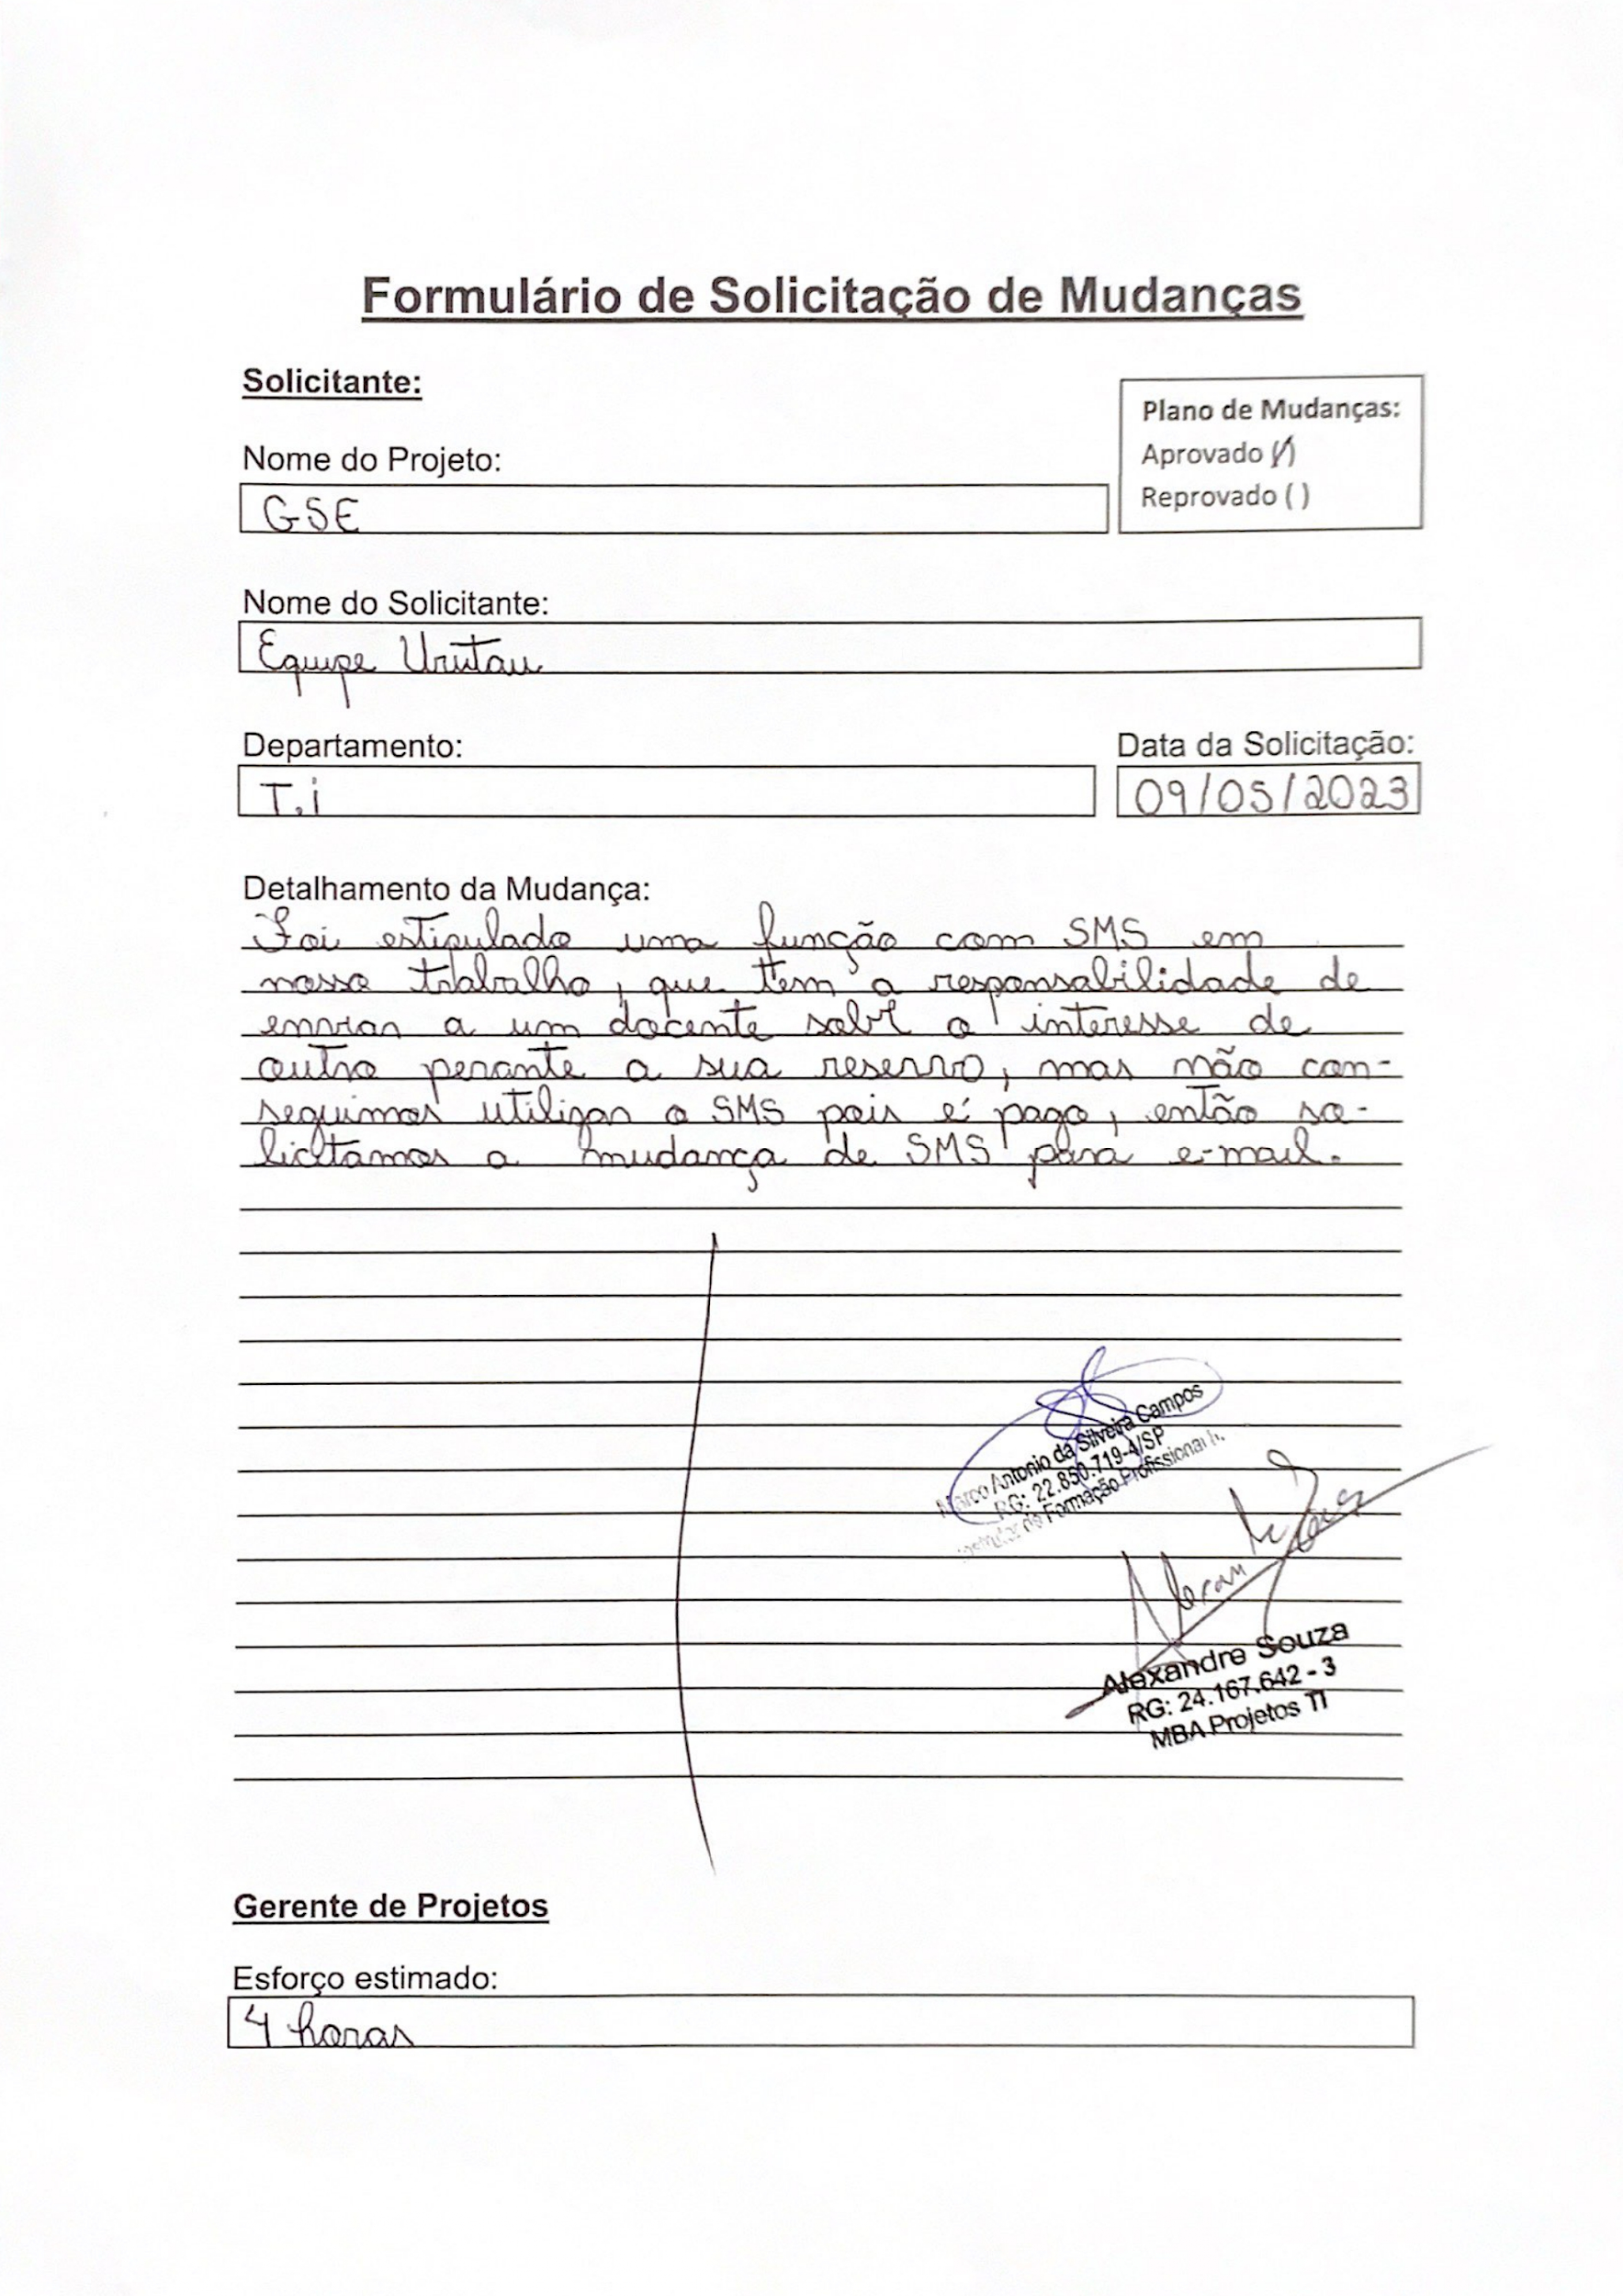 Formulário de Solicitação de Mudanças
Solicitante:
Plano de Mudanças:
Aprovado (/)
Reprovado ( )
Nome do Projeto:
GSE
Nome do Solicitante:
Equipe Urutau
Departamento:
T.i
Data da Solicitação:
09/05/2023
Detalhamento da Mudança:
Foi estipulado uma função com SMS em
nosso trabalho, que tem a responsabilidade de
enviar a um docente sobre o interesse de
outro perante a sua reserva, mas não con-
seguimos utilizar o SMS pois é pago, então so-
licitamos a mudança de SMS para e-mail.
Marco Antonio da Silveira Campos
RG: 22.850.719-4/SP
Instrutor de Formação Profissional
Alexandre Souza
RG: 24.167.642 - 3
MBA Projetos TI
Gerente de Projetos
Esforço estimado:
4 horas